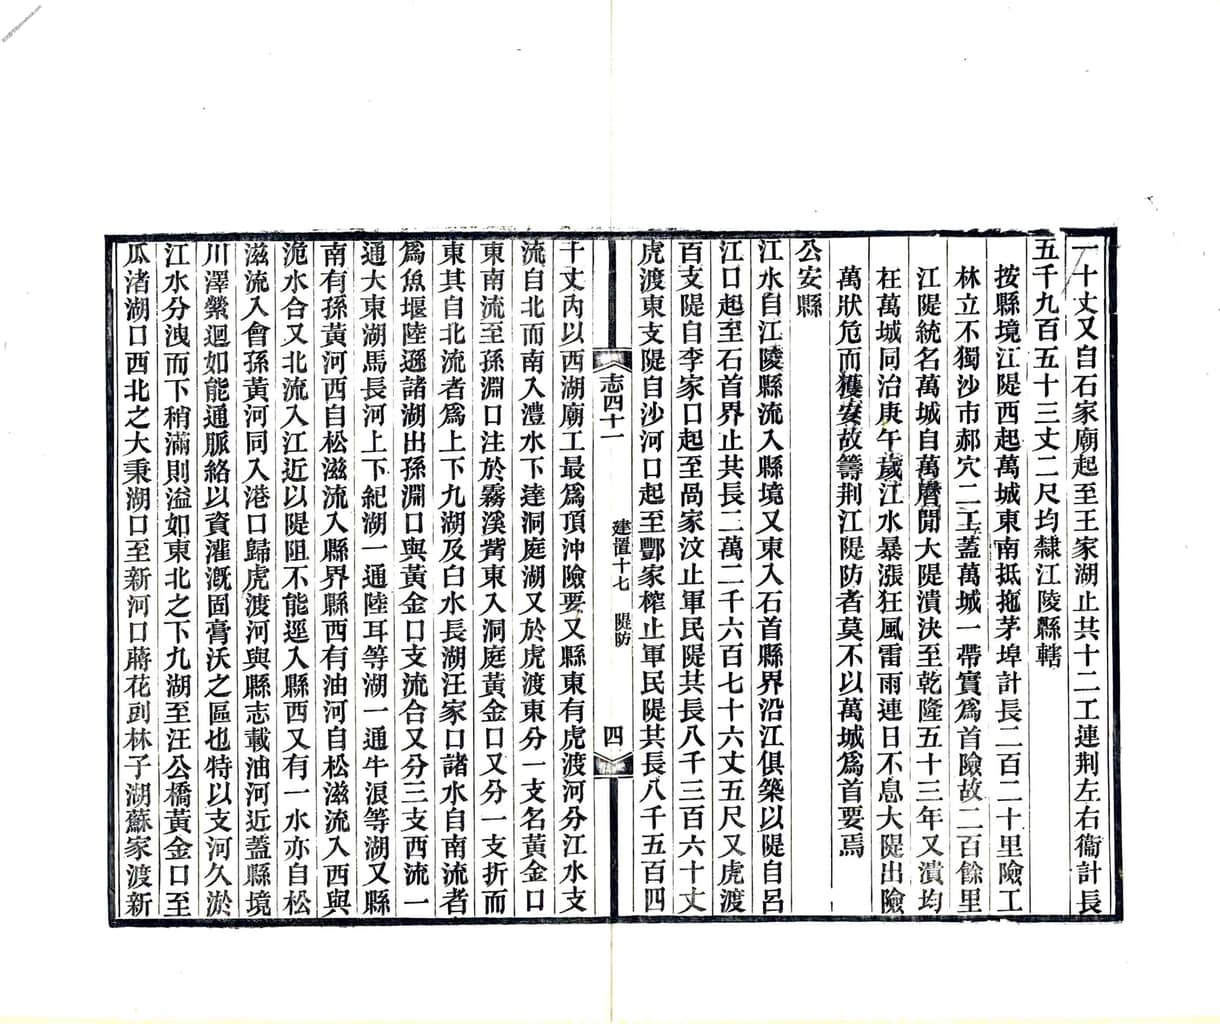 一十丈又自石家廟起至王家湖止共十二工連荆左右衞計長
五千九百五十三丈二尺均隸江陵縣轄
按縣境江隄西起萬城東南抵拖茅埠計長二百二十里險工
林立不獨沙市郝穴二工蓋萬城一帶實爲首險故二百餘里
江隄統名萬城自萬曆間大隄潰決至乾隆五十三年又潰均
在萬城同治庚午歲江水暴漲狂風雷雨連日不息大隄出險
萬狀危而獲安故籌荆江隄防者莫不以萬城爲首要焉
公安縣
江水自江陵縣流入縣境又東入石首縣界沿江俱築以隄自呂
江口起至石首界止共長二萬二千六百七十六丈五尺又虎渡
百支隄自李家口起至咼家汶止軍民隄共長八千三百六十丈
虎渡東支隄自沙河口起至酆家榨止軍民隄共長八千五百四
志四十一
建置十七
隄防
四
千丈內以西湖廟工最爲頂沖險要又縣東有虎渡河分江水支
流自北而南入澧水下達洞庭湖又於虎渡東分一支名黃金口
東南流至孫淵口注於霧溪觜東入洞庭黃金口又分一支折而
東其自北流者爲上下九湖及白水長湖汪家口諸水自南流者
爲魚堰陸遜諸湖出孫淵口與黃金口支流合又分三支西流一
通大東湖馬長河上下紀湖一通陸耳等湖一通牛浪等湖又縣
南有孫黃河西自松滋流入縣界縣西有油河自松滋流入西與
洈水合又北流入江近以隄阻不能逕入縣西又有一水亦自松
滋流入會孫黃河同入港口歸虎渡河與縣志載油河近蓋縣境
川澤縈迴如能通脈絡以資灌漑固膏沃之區也特以支河久淤
江水分洩而下稍滿則溢如東北之下九湖至汪公橋黃金口至
瓜渚湖口西北之大秉湖口至新河口蔣花到林子湖蘇家渡新